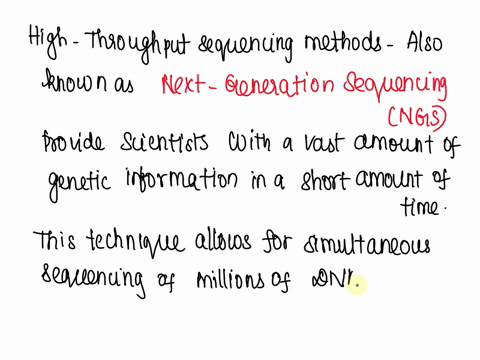 High - Throughput sequencing methods - Also
known as Next - Generation Sequencing
(NGS)
Provide Scientists With a vast amount of
genetic information in a short amount of
time.
This technique allows for simultaneous
sequencing of millions of